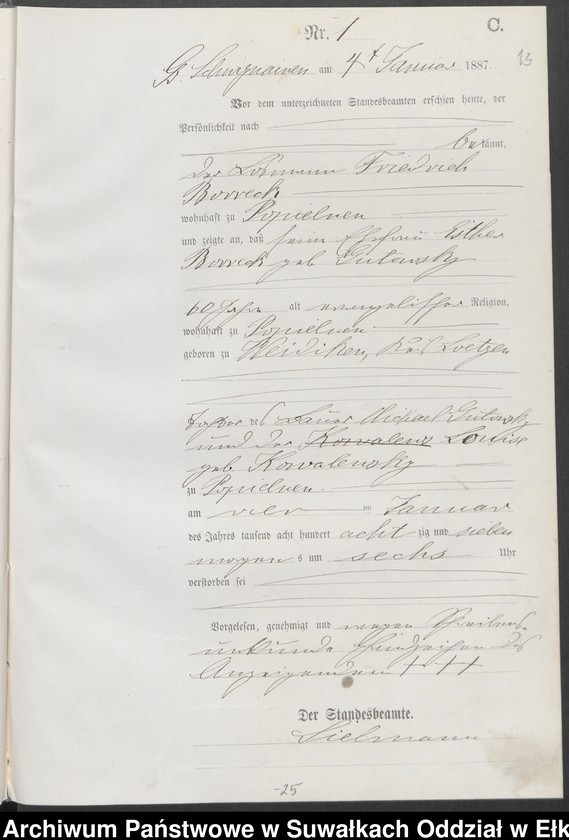 C.
Nr. 1
13
am 4t Januar 1887.
Vor dem unterzeichneten Standesbeamten erschien heute, der
Persönlichkeit nach
bekannt,
der Friedrich
Borreck
wohnhaft zu Popiellnen
und zeigte an, daß seine Ehefrau Esther
Borreck geb. Gutowsky
60 Jahre alt evangelischer Religion,
wohnhaft zu Popiellnen
geboren zu Kreis Loetzen
Tochter des Bauer Michael Gutowsky
und der Louise
geb. Kowalewsky
zu Popiellnen
am vier ten Januar
des Jahres tausend acht hundert acht zig und sieben
morgens um sechs Uhr
verstorben sei
Vorgelesen, genehmigt und wegen Schreibens-
unkunde Handzeichen des
Anzeigenden + + +
Der Standesbeamte.
Sielmann
-25
Archiwum Państwowe w Suwałkach Oddział w Ełk